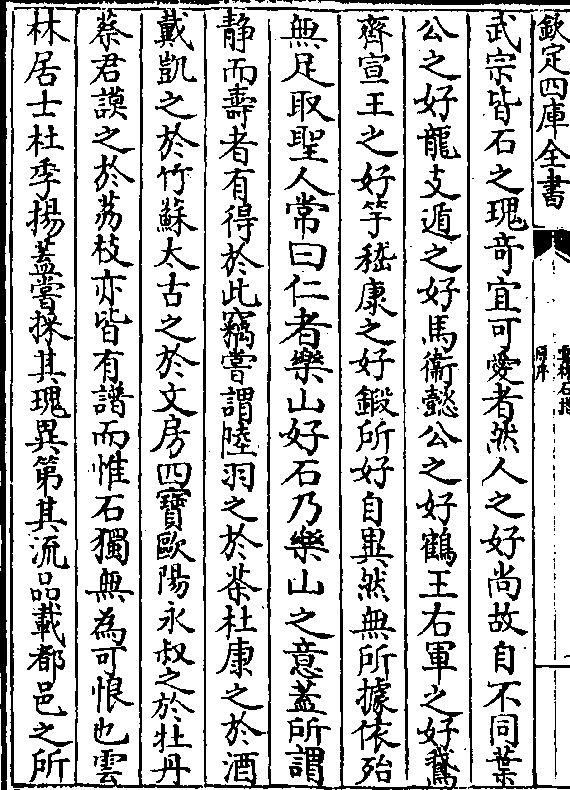 欽定四庫全書
武宗皆石之瑰竒宜可愛者然人之好尚故自不同葉
公之好龍支遁之好馬衞懿公之好鶴王右軍之好鵞
齊宣王之好竽嵇康之好鍛所好自異然無所據依殆
無足取聖人常曰仁者樂山好石乃樂山之意葢所謂
静而壽者有得於此竊嘗謂陸羽之於茶杜康之於酒
戴凱之於竹蘇太古之於文房四寶歐陽永叔之於牡丹
蔡君謨之於茘枝亦皆有譜而惟石獨無為可恨也雲
林居士杜季揚葢嘗採其瑰異第其流品載都邑之所